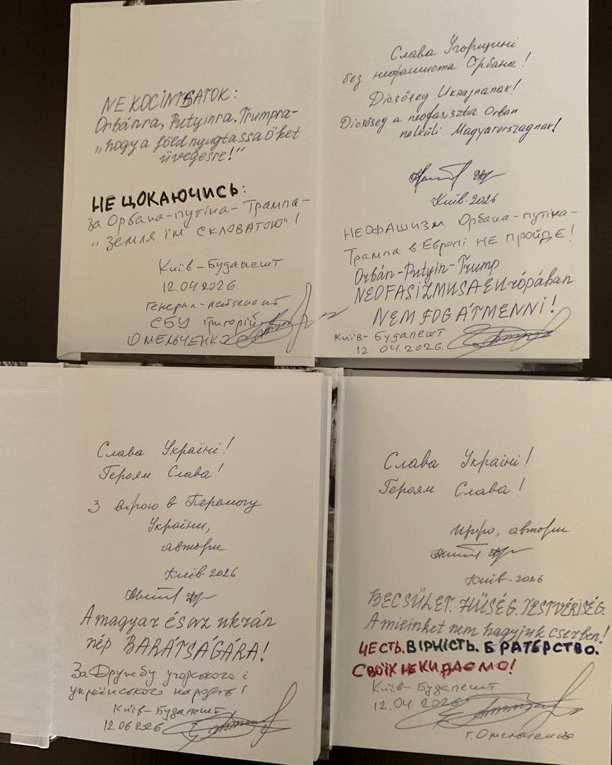 NE KOCINTSATOK:
Orbánra, Putyinra, Trumpra-
„hogy a föld nyugtassa őket
üvegesre!"
НЕ ЦОКАЮЧИСЬ:
За Орбана-путіна-Трампа-
„Земля їм скловатою"!
Київ-Будапешт
12.04.2026.
Генерал-лейтенант
СБУ Григорій
ОМЕЛЬЧЕНКО
Слава Угорщині
без неофашиста Орбана!
Dicsőség Ukrajnának!
Dicsőség a neofasiszta Orbán
nélküli Magyarországnak!
Київ 2026
НЕОФАШИЗМ Орбана-путіна-
Трампа в Європі НЕ ПРОЙДЕ!
Orbán-Putyin-Trump
NEOFASIZMUSA EU-rópában
NEM FOG ÁTMENNI!
Київ-Будапешт
12.04.2026.
Слава Україні!
Героям Слава!
З вірою в Перемогу
України,
автори
Київ 2026
A magyar és az ukrán
nép BARÁTSÁGÁRA!
За Дружбу угорського і
українського народів!
Київ-Будапешт
12.06.2026.
Слава Україні!
Героям Слава!
Щиро, автори
Київ-2026
BECSÜLET. HŰSÉG. TESTVÉRISÉG.
A mieinket nem hagyjuk cserben!
ЧЕСТЬ. ВІРНІСТЬ. БРАТЕРСТВО.
СВОЇХ НЕ КИДАЄМО!
Київ-Будапешт
12.04.2026.
г. Омельченко